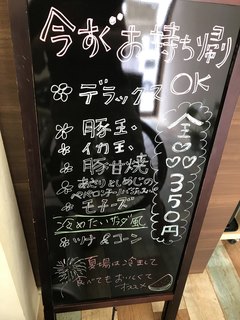 今すぐお持ち帰り
OK
デラックス
豚玉
イカ玉
豚甘焼
あさりとしめじの
ペペロンチーノ
モチーズ
冷めたいサラダ風
ツナ&コーン
全♡♡♡350円
夏場は冷まして
食べてもおいしくて
オススメ